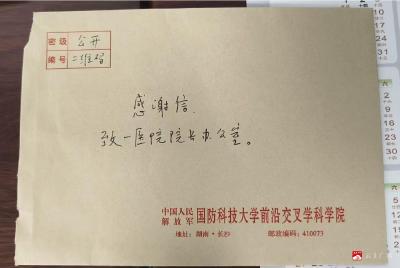 密级 公开
编号 二维码
感谢信
致一医院院长办公室。
中国人民
解放军 国防科技大学前沿交叉学科学院
地址：湖南·长沙 邮政编码：410073